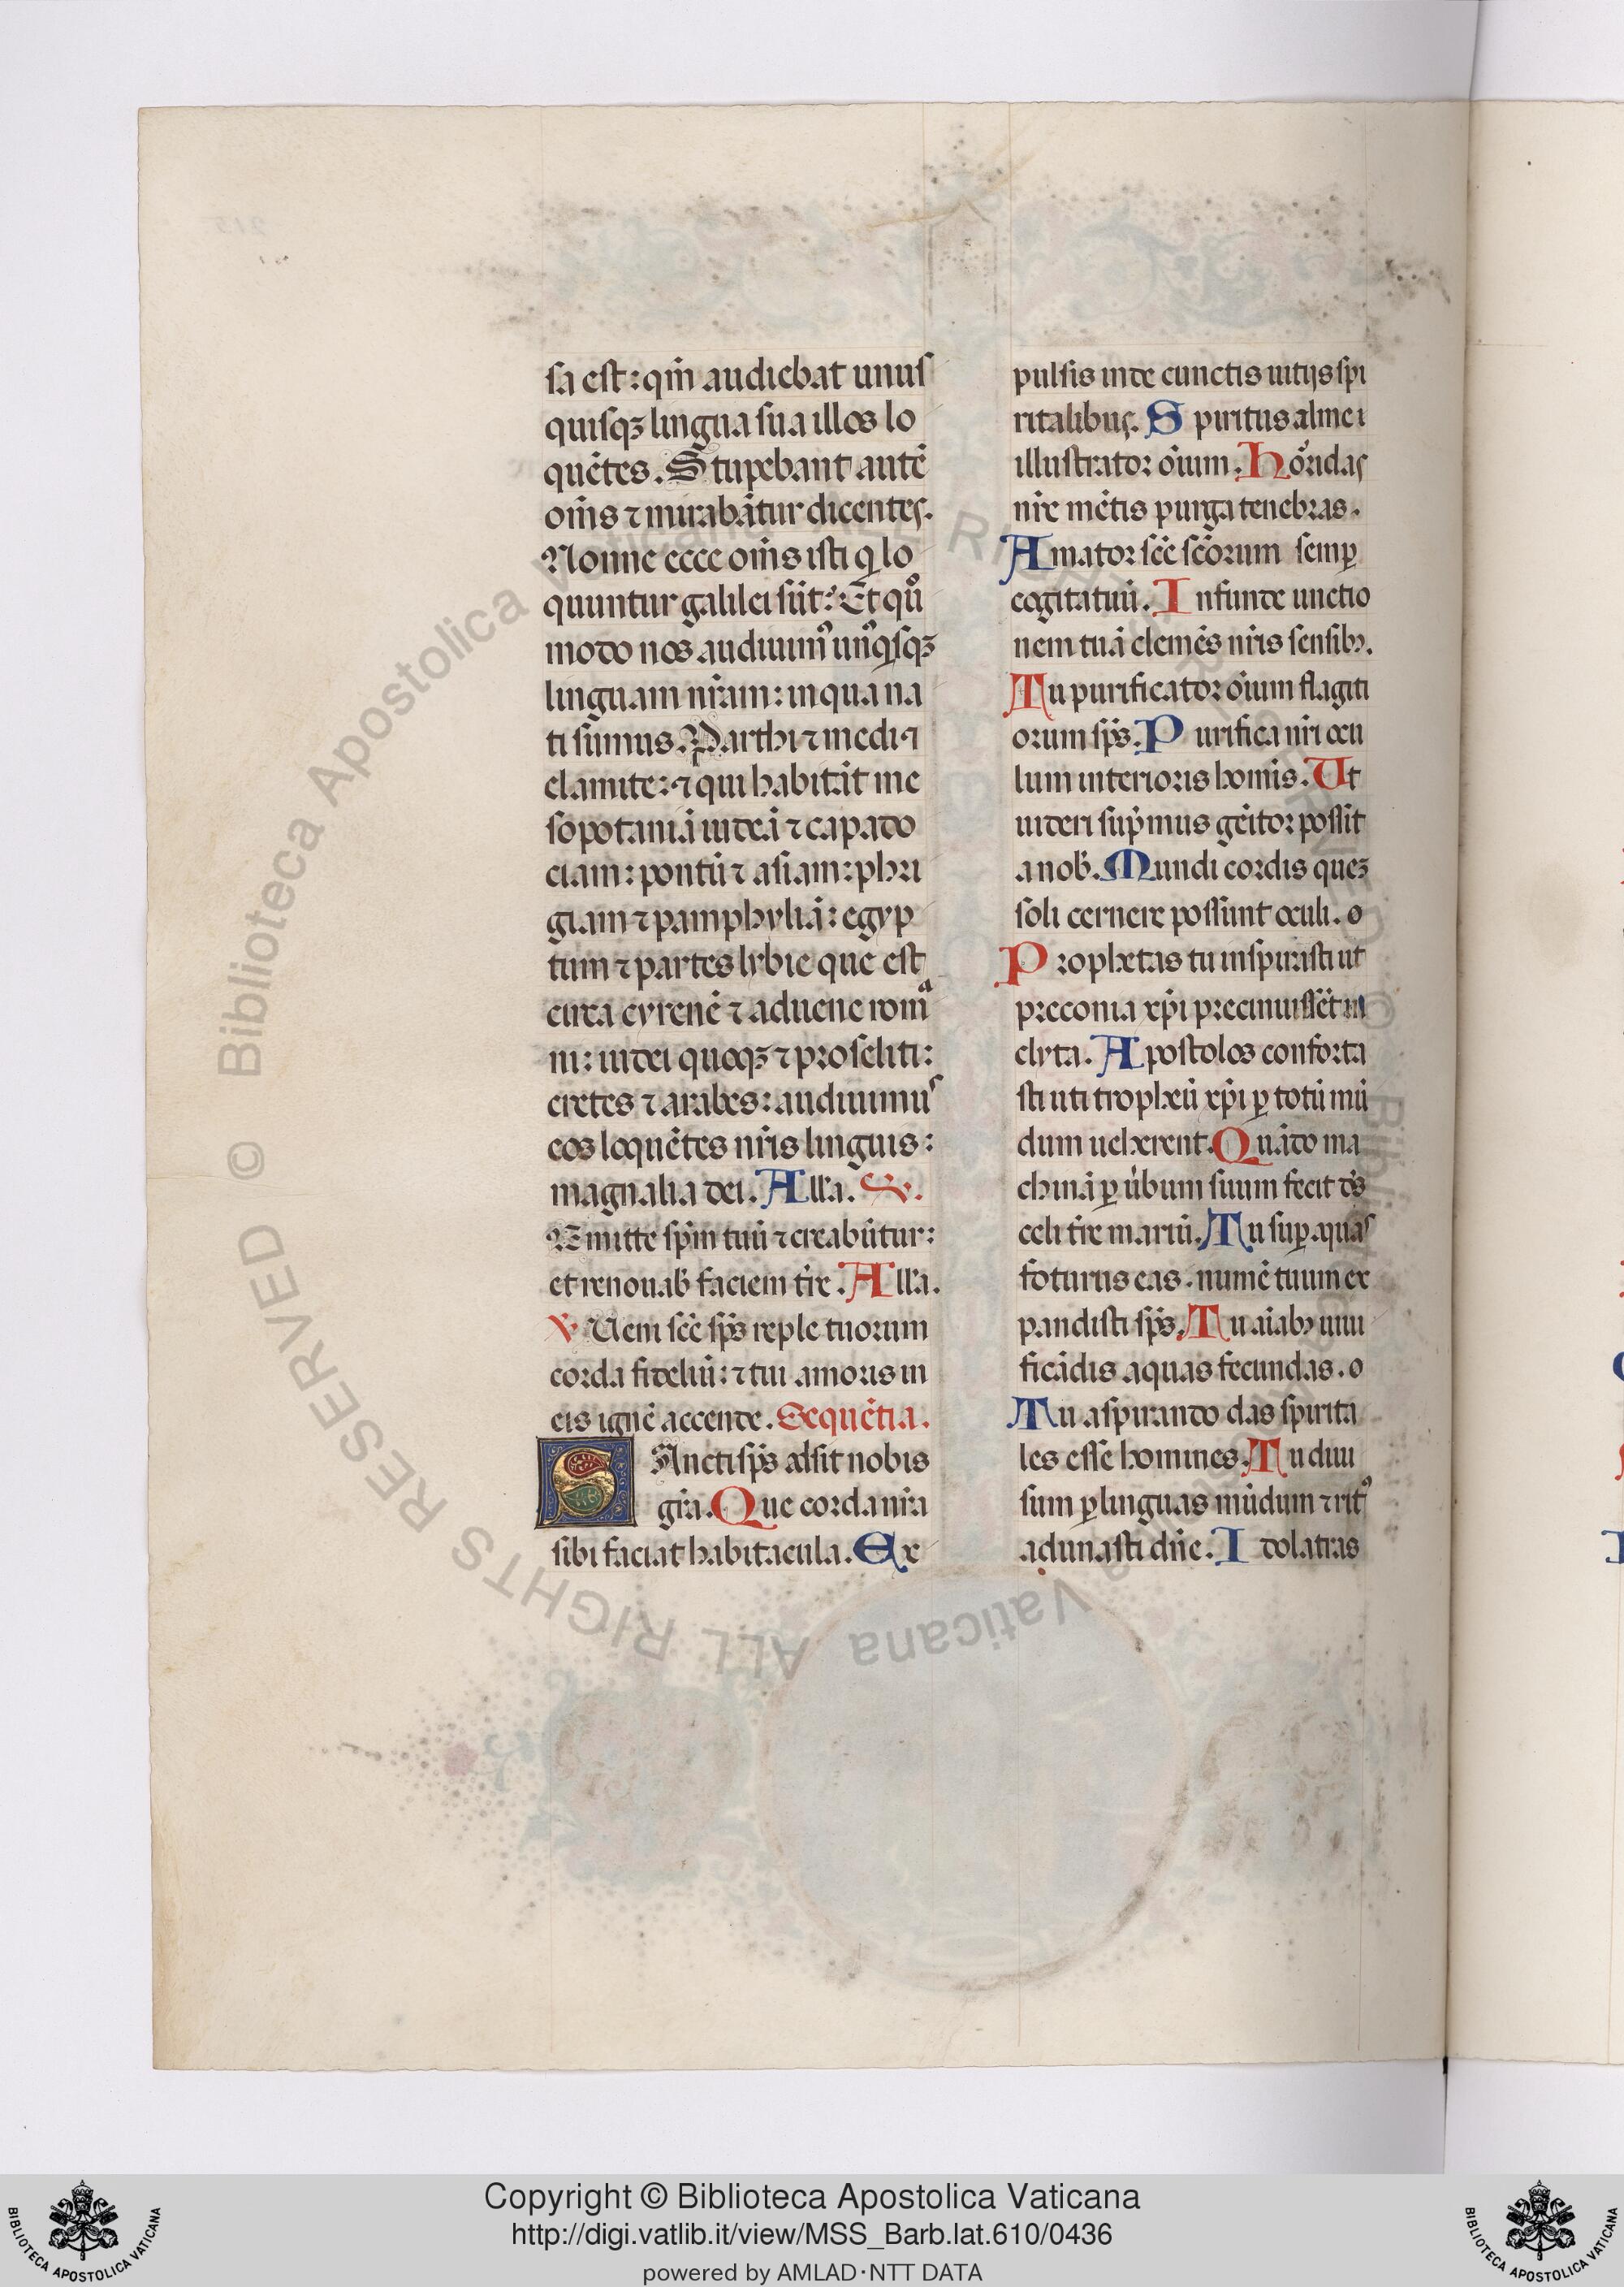 sa est: qm̄ audiebat unus
quisqꝫ lingua sua illos lo
quētes. Stupebant autē
om̄s ⁊ mirabātur dicentes.
Nonne ecce om̄s isti q̄ lo
quuntur galilei sūt: Et quō
modo nos audiuimꝰ unꝰqsqꝫ
linguam nr̄am: in qua na
ti sumus. Parthi ⁊ medi ⁊
elamite: ⁊ qui habitāt me
sopotamiā iudeā ⁊ capado
ciam: pontū ⁊ asiam: phri
giam ⁊ pamphyliā: egyp
tum ⁊ partes lybie que est
circa cyrenē ⁊ aduene roma
ni: iudei quoqꝫ ⁊ proseliti:
cretes ⁊ arabes: audiuimus
eos loquētes nr̄is linguis:
magnalia dei. Alla. V.
Emitte spm̄ tuū ⁊ creabūtur:
et renouab̄ faciem tr̄e. Alla.
V Ueni scē sps̄ reple tuorum
corda fideliū: ⁊ tui amoris in
eis ignē accende. Sequētia.
SAncti sps̄ assit nobis
gr̄a. Que corda nr̄a
sibi faciat habitacula. Ex
pulsis inde cunctis uitijs spi
ritalibus. Spiritus alme i
illustrator oīum. Horridas
nr̄e mētis purga tenebras.
Amator scē scōrum semꝑ
cogitatuū. Infunde unctio
nem tuā clemēs nr̄is sensibꝫ.
Tu purificator oīum flagiti
orum sps̄. Purifica nr̄i ocu
lum interioris homīs. Ut
uideri supᵉmus gēitor possit
a nob̄. Mundi cordis queꝫ
soli cernere possunt oculi. o
Prophetas tu inspirasti ut
preconia xp̄i precinuissēt in
clyta. Apostolos conforta
sti uti tropheū xp̄i ꝑ totū mū
dum ueherent. Quādo ma
chinā ꝑ ūbum suum fecit dˢ̄
celi tr̄e mariū. Tu suꝑ aquas
foturus eas. numē tuum ex
pandisti sps̄. Tu aīabꝫ uiui
ficādis aquas fecundas. o
Tu aspirando das spirita
les esse homines. Tu diui
sum ꝑ linguas mūdum ⁊ ritꝰ
adunasti dn̄e. Idolatras
Copyright © Biblioteca Apostolica Vaticana
http://digi.vatlib.it/view/MSS_Barb.lat.610/0436
powered by AMLAD·NTT DATA
BIBLIOTECA APOSTOLICA VATICANA
BIBLIOTECA APOSTOLICA VATICANA
© Biblioteca Apostolica Vaticana ALL RIGHTS RESERVED © Biblioteca Apostolica Vaticana ALL RIGHTS RESERVED